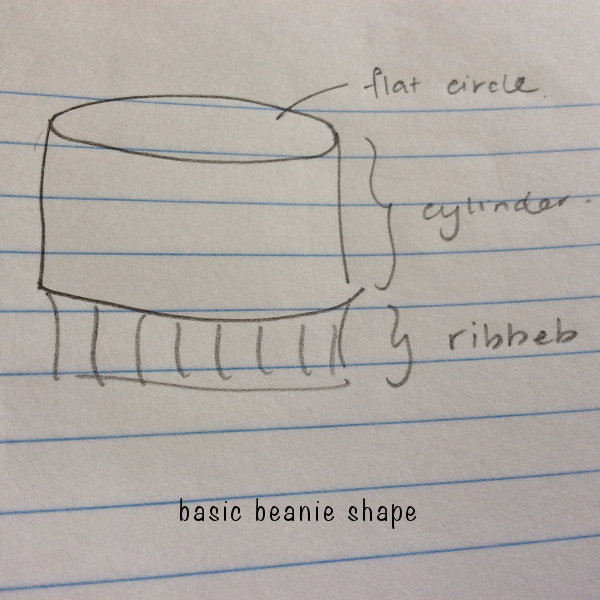 flat circle.
cylinder.
ribbeb
basic beanie shape